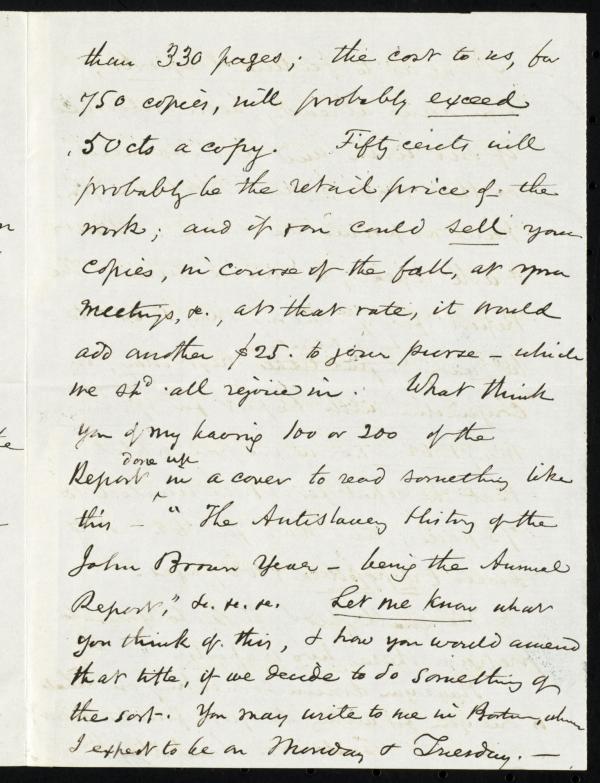 than 330 pages; the cost to us, for
750 copies, will probably exceed
50cts a copy. Fifty cents will
probably be the retail price of the
work; and if you could sell your
copies, in course of the fall, at your
meetings, &c., at that rate, it would
add another $25. to your purse – which
we shd. all rejoice in. What think
you of my having 100 or 200 of the
Report done up in a cover to read something like
this – "The Antislavery History of the
John Brown Year – being the Annual
Report," &c. &c. &c. Let me know what
you think of this, & how you would amend
that title, if we decide to do something of
the sort. You may write to me in Boston, where
I expect to be on Monday & Tuesday. –